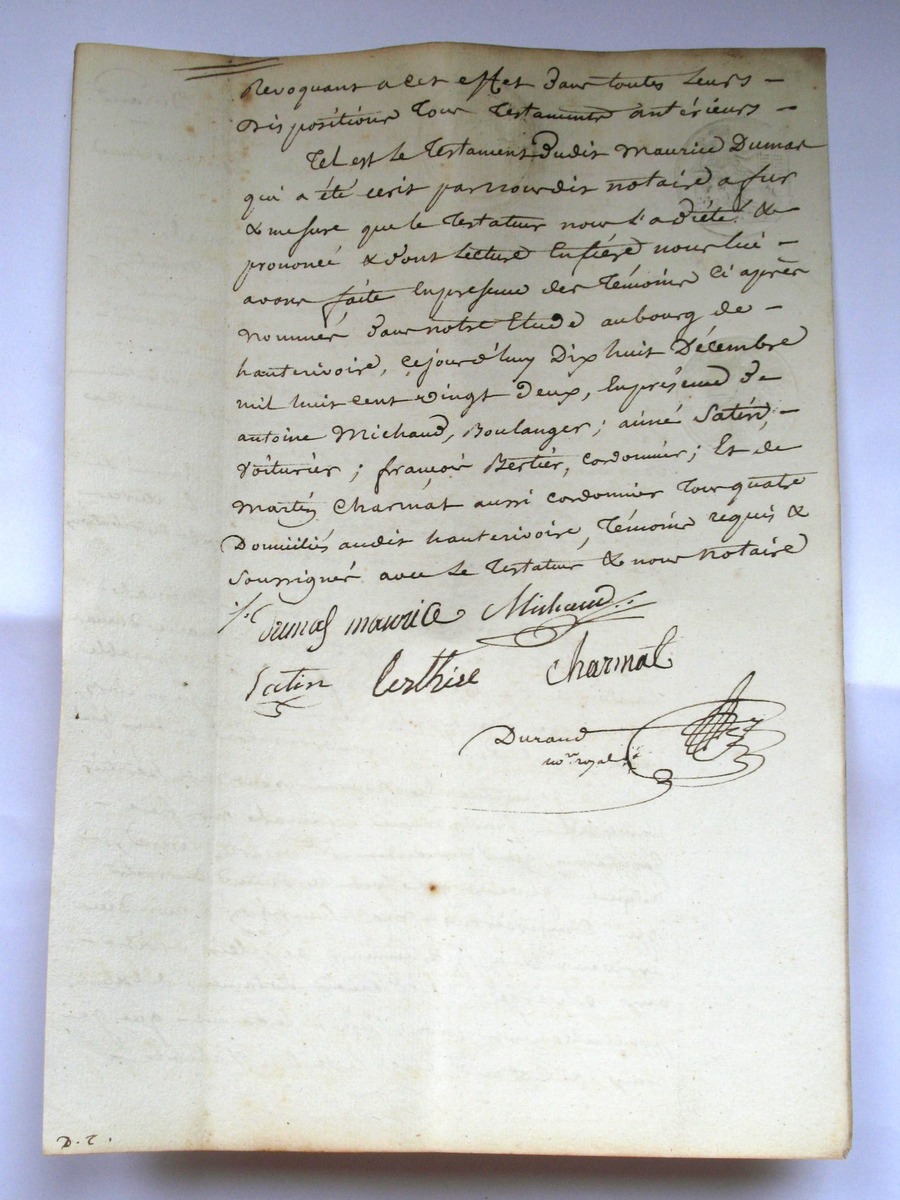 Revoquant a cet effet dans toutes leurs –
dispositions tous Testaments antérieurs –
Tel est le Testament dudit Maurice Dumas
qui a été ecrit par nousdit notaire a fur
& mesure que le Testateur nous l'a dicté &
prononcé & dont Lecture Entière nous lui –
avons faite Enpresence des Témoins Ci après
nommés dans notre Etude aubourg de –
hauterivoire, cejourd'huy Dix huit Décembre
mil huit cent vingt deux, Enprésence de
antoine Michaud, Boulanger; aimé Satin, –
Voiturier; françois Bertier, cordonnier; Et de
Martin Charmat aussi cordonnier Tous quatre
Domiciliés audit hauterivoire, Témoins requis &
soussignés avec le Testateur & nous notaire
Dumas maurice Michaud
Satin Berthier Charmat
Durand
no.re royal
D. T.